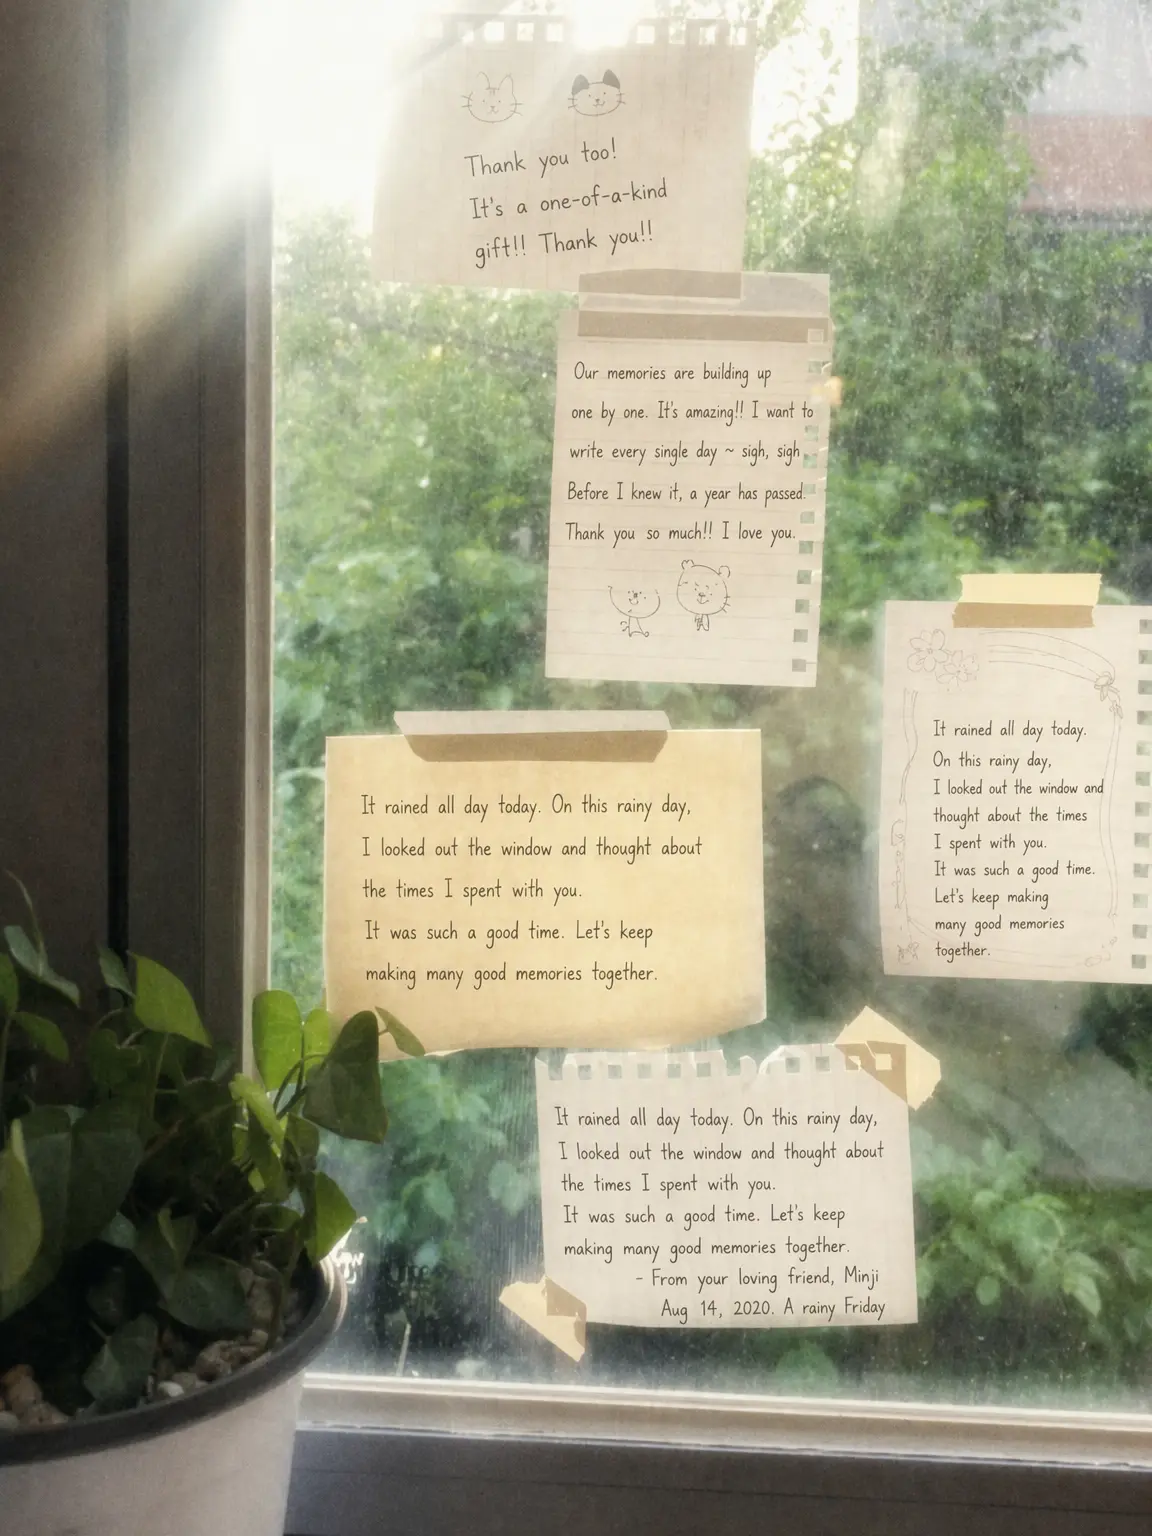 Thank you too!
It's a one-of-a-kind
gift!! Thank you!!
Our memories are building up
one by one. It's amazing!! I want to
write every single day ~ sigh, sigh
Before I knew it, a year has passed.
Thank you so much!! I love you.
It rained all day today.
On this rainy day,
I looked out the window and
thought about the times
I spent with you.
It was such a good time.
Let's keep making
many good memories
together.
It rained all day today. On this rainy day,
I looked out the window and thought about
the times I spent with you.
It was such a good time. Let's keep
making many good memories together.
It rained all day today. On this rainy day,
I looked out the window and thought about
the times I spent with you.
It was such a good time. Let's keep
making many good memories together.
- From your loving friend, Minji
Aug 14, 2020. A rainy Friday